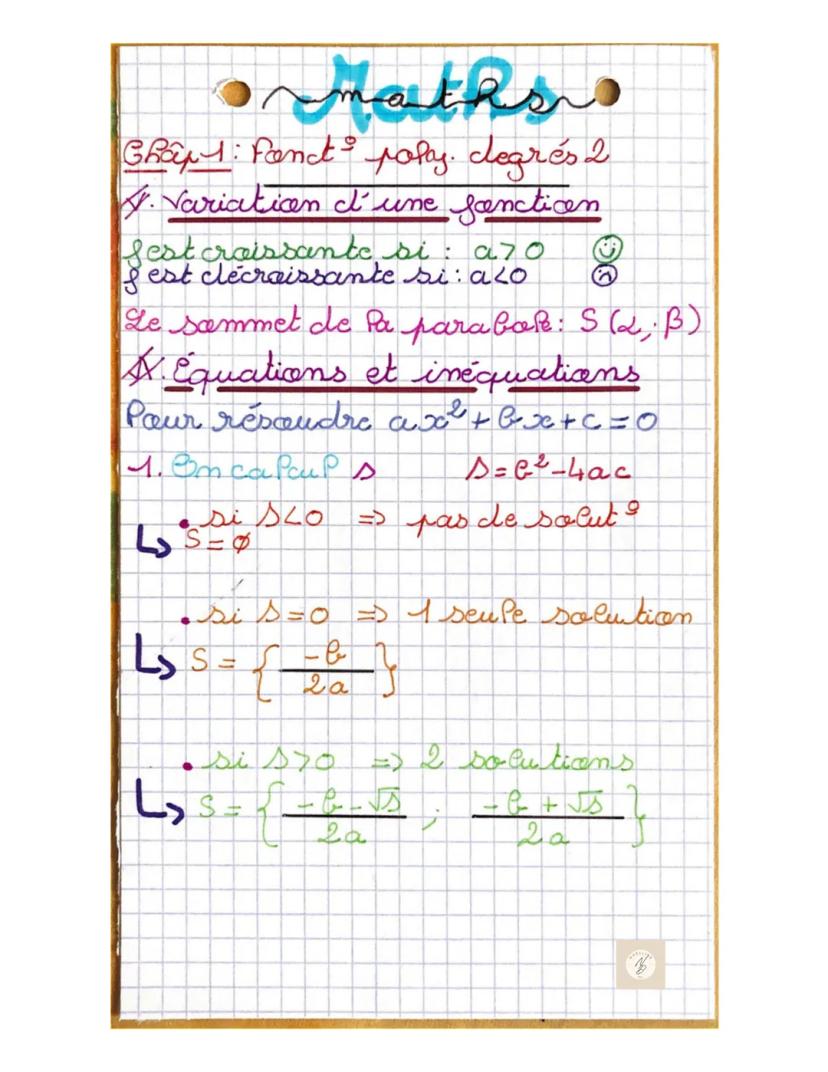 Maths
maths
Chap 1: Fonct° poly. degrés 2
I. Variation d'une fonction
f est croissante si : a > 0
f est décroissante si : a < 0
Le sommet de la parabole : S (α ; β)
II. Équations et inéquations
Pour résoudre ax² + bx + c = 0
1. On calcul Δ Δ = b² - 4ac
• si Δ < 0 => pas de solut°
↳ S = ∅
• si Δ = 0 => 1 seule solution
↳ S = { -b / 2a }
• si Δ > 0 => 2 solutions
↳ S = { -b - √Δ / 2a ; -b + √Δ / 2a }